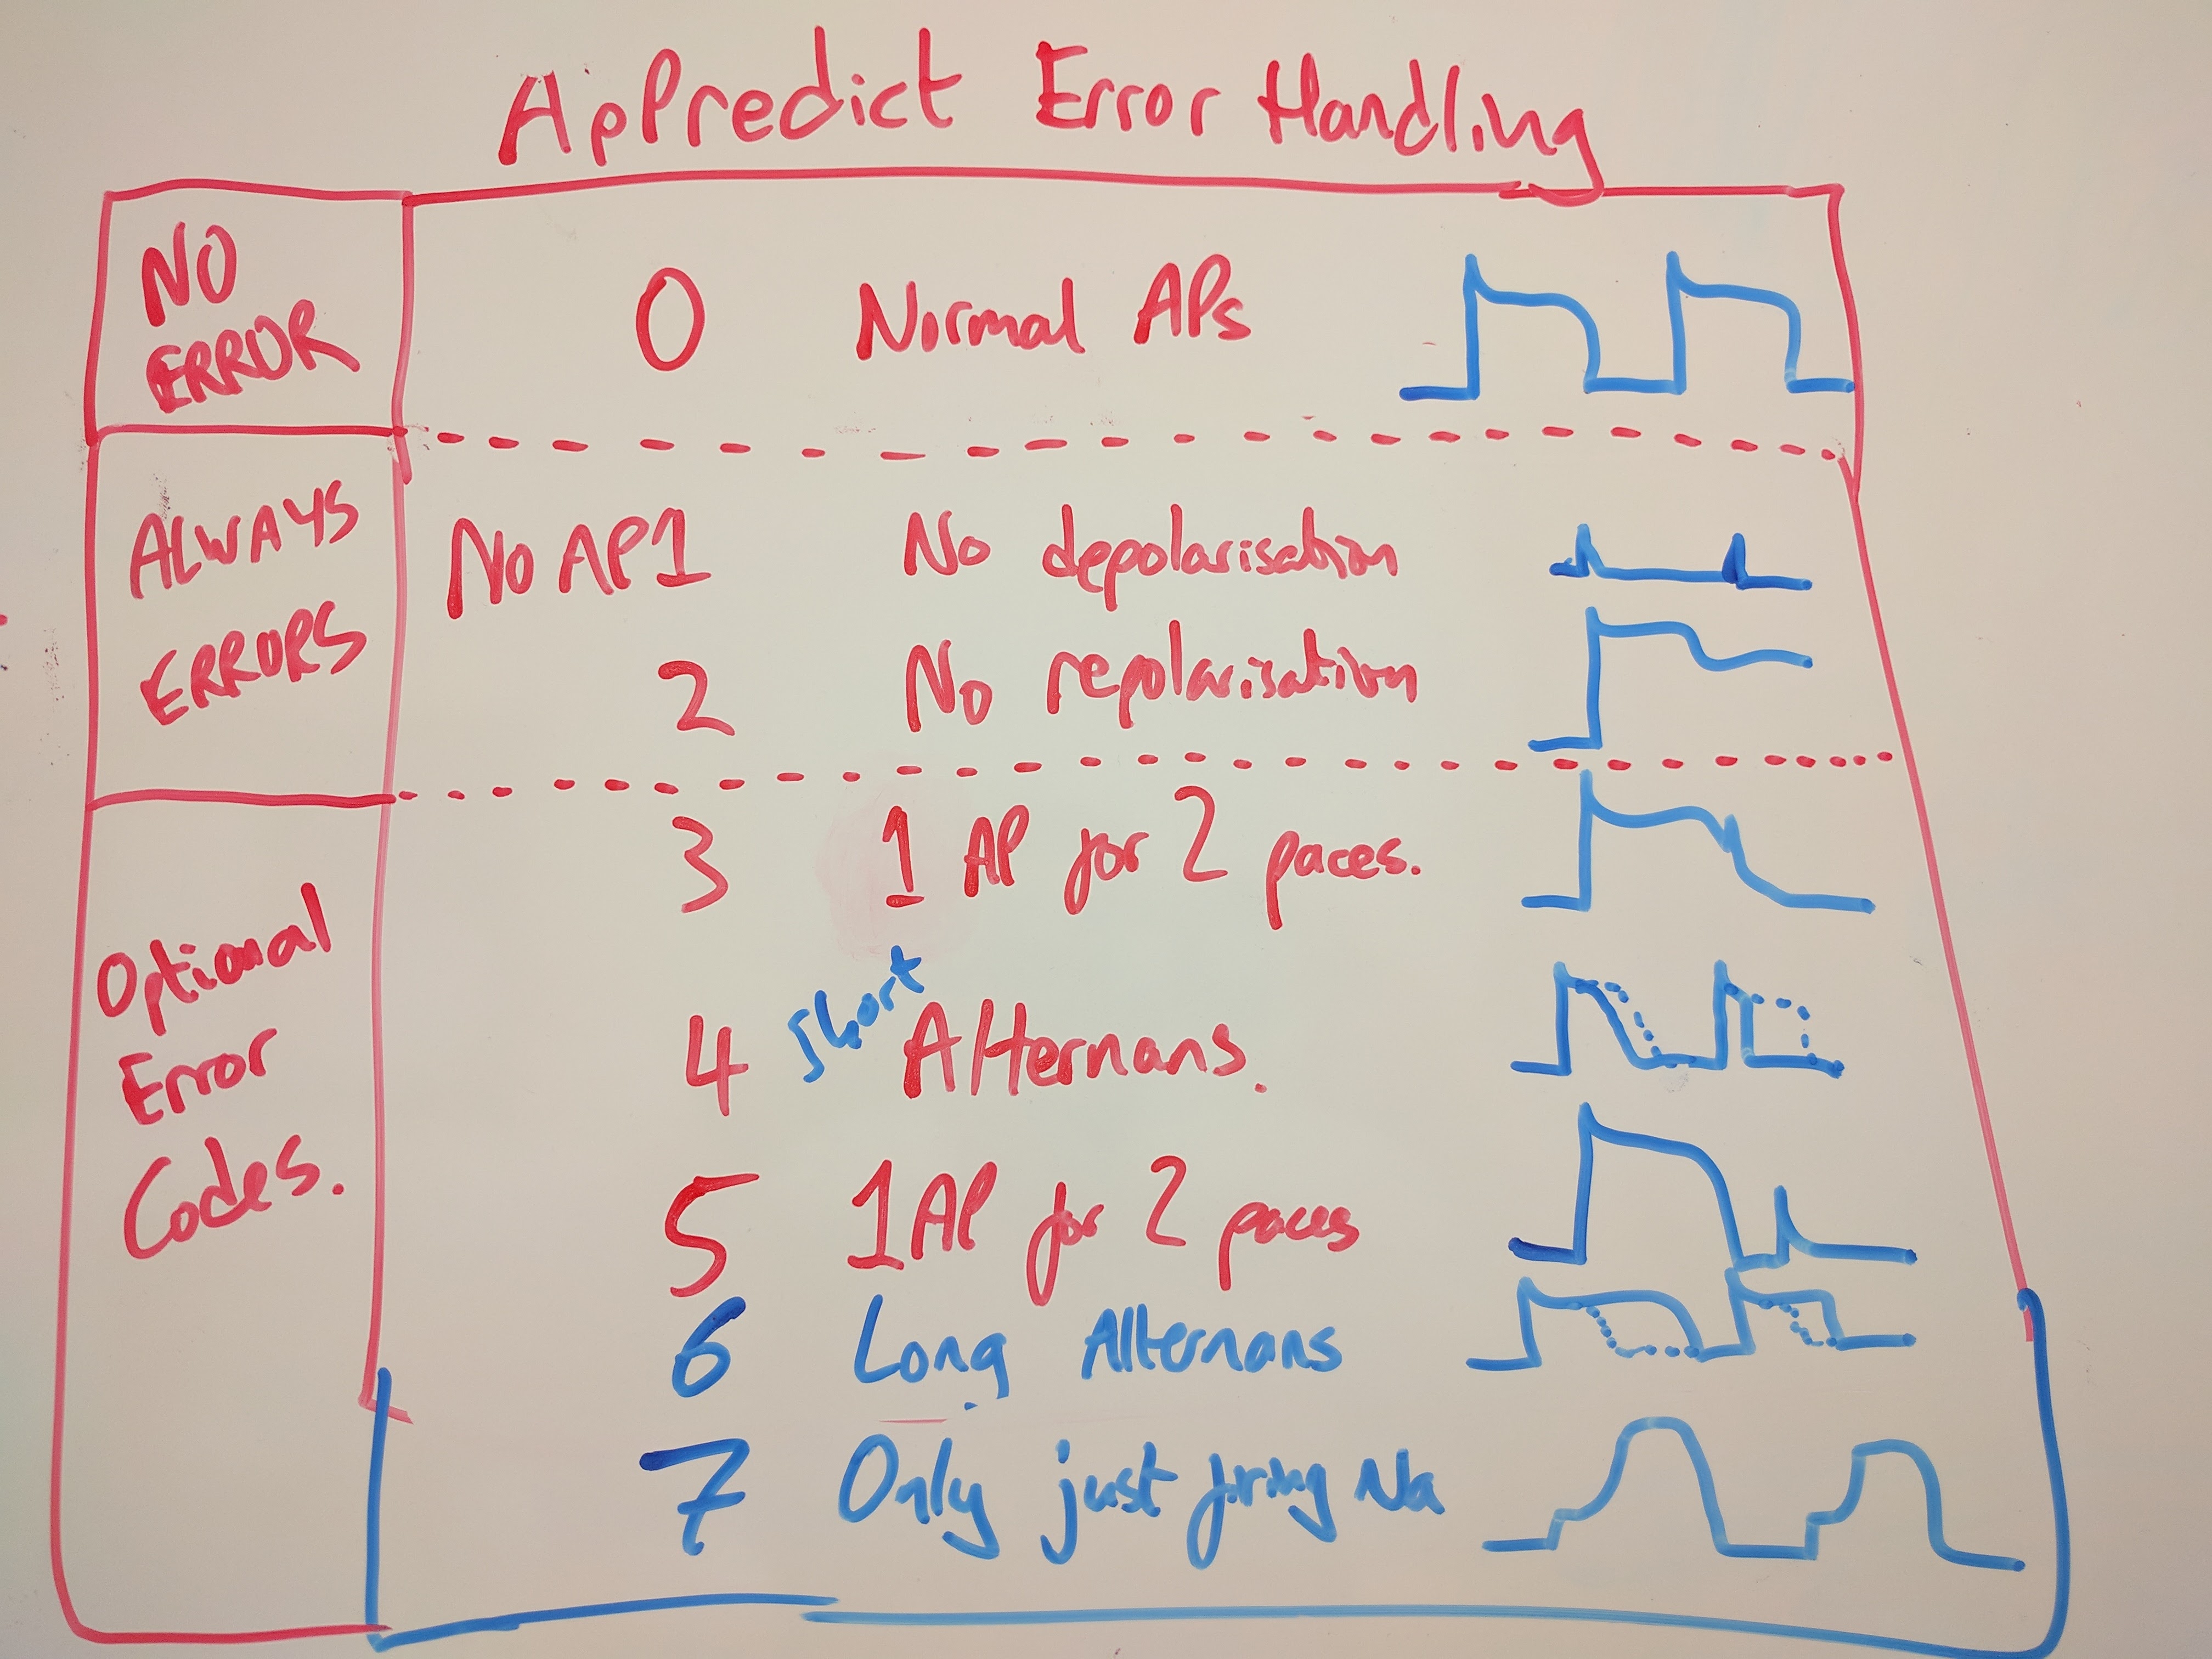 ApPredict Error Handling
NO
ERROR
0 Normal APs
ALWAYS
ERRORS
No AP 1 No depolarisation
2 No repolarisation
Optional
Error
Codes.
3 1 AP for 2 paces.
4 Short Alternans.
5 1 AP for 2 paces
6 Long Alternans
7 Only just firing Na